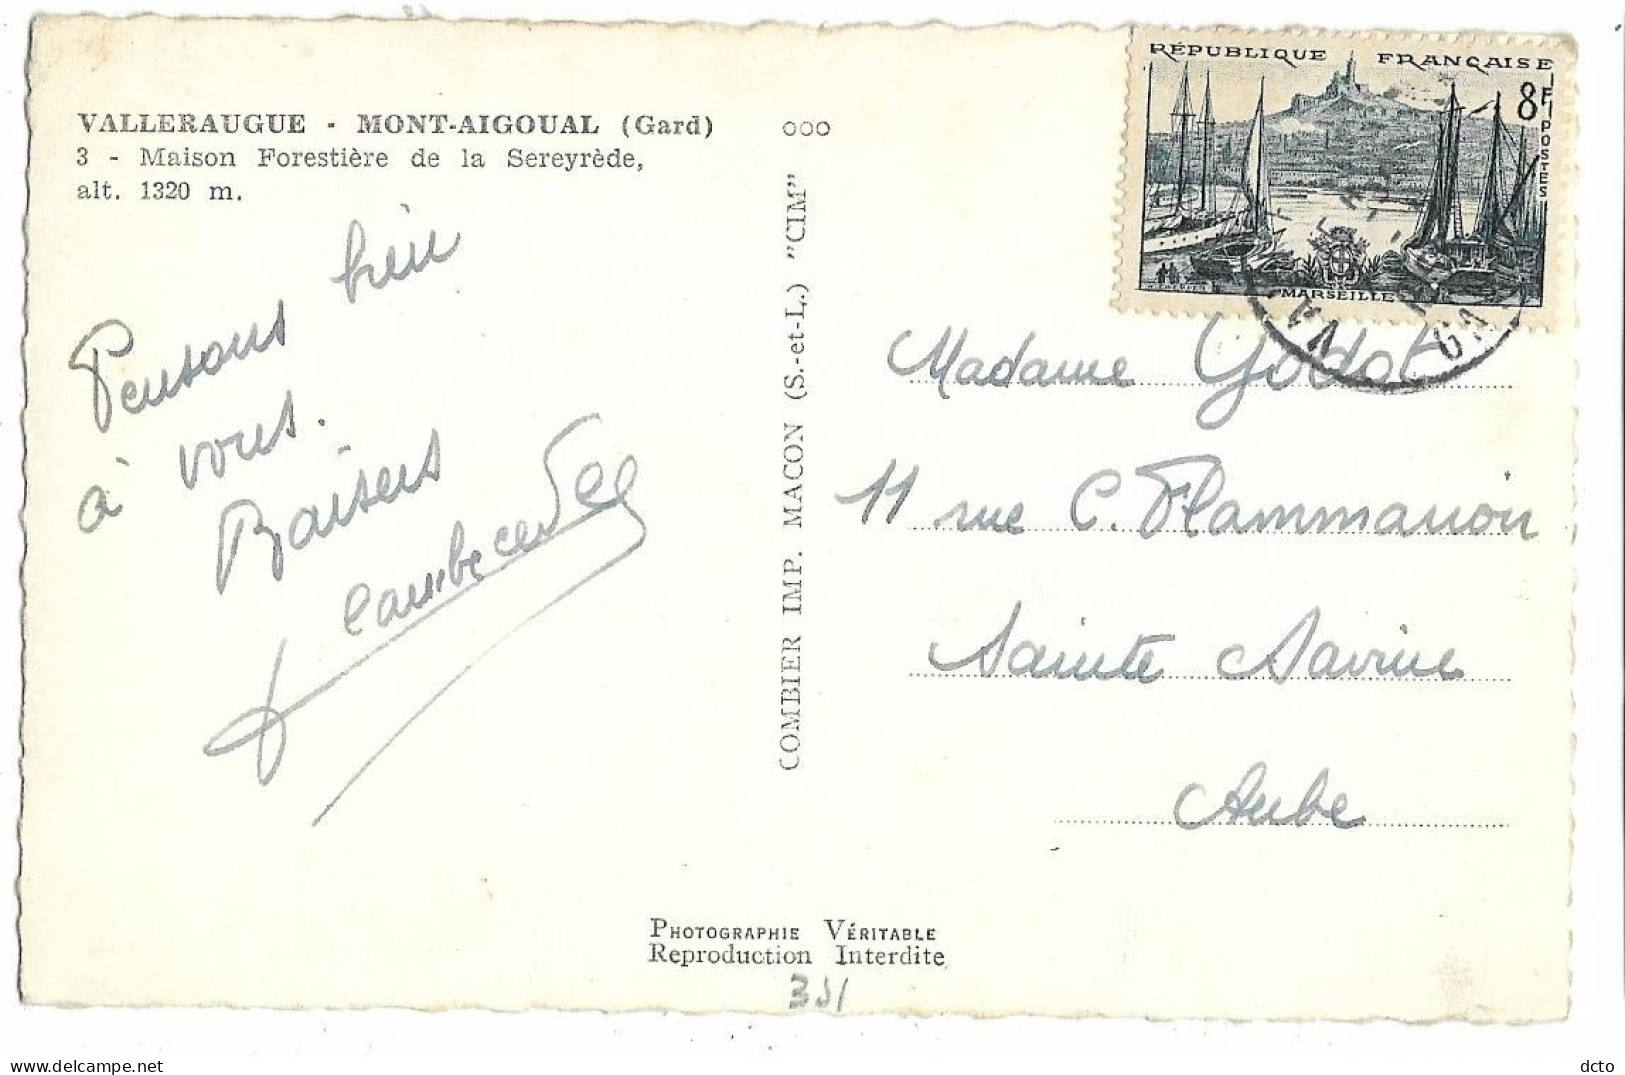 VALLERAUGUE - MONT-AIGOUAL (Gard)
3 - Maison Forestière de la Sereyrède,
alt. 1320 m.
Pensons bien
à vous.
Baisers
COMBIER IMP. MACON (S.-et-L.) "CIM"
ooo
RÉPUBLIQUE FRANÇAISE
8F
POSTES
MARSEILLE
VA
GA
Madame Godot
11 rue C. Flammarion
Sainte Savine
Aube
PHOTOGRAPHIE VÉRITABLE
Reproduction Interdite
dcto